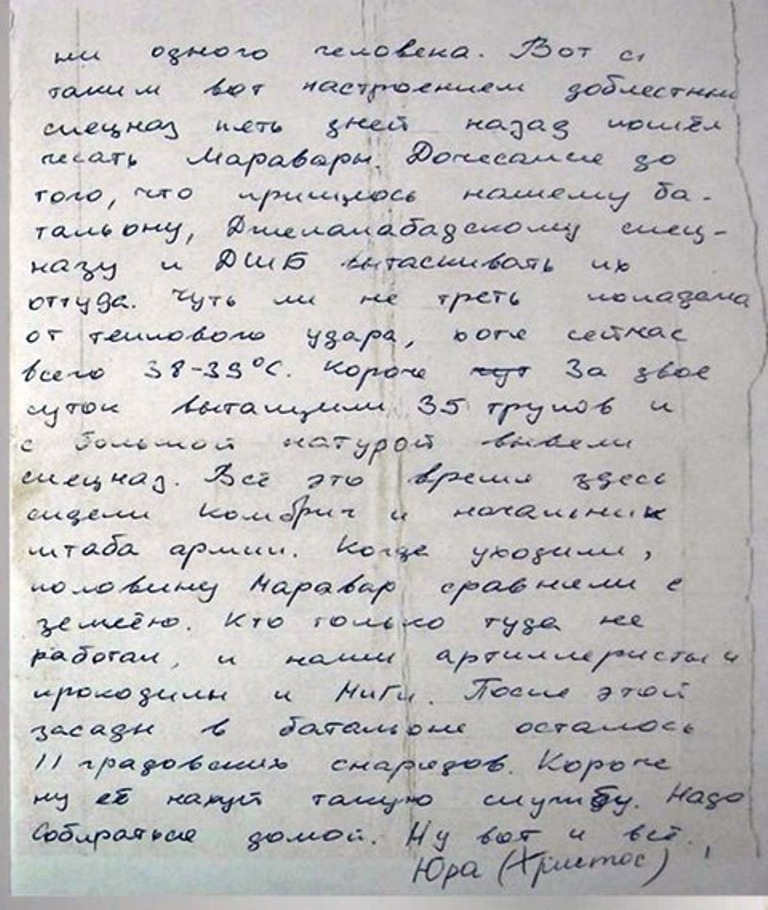 ни одного человека. Вот с
таким вот настроением доблестный
спецназ пять дней назад пошёл
чесать Маравары. Дочесание до
того, что пришлось нашему ба-
тальону, Джелалабадскому спец-
назу и ДШБ вытаскивать их
оттуда. Чуть ли не треть попадала
от теплового удара, хотя сейчас
всего 38-39°С. Короче За двое
суток вытащили 35 трупов и
с большой натурой вывели
спецназ. Всё это время здесь
сидели Комбриг и начальник
штаба армии. Когда уходили,
половину Маравар сравняли с
землёю. Кто только туда не
работал, и наши артиллеристы и
крокодилы и МиГи. После этой
засады в батальоне осталось
11 градовских снарядов. Короче
ну её нахуй такую службу. Надо
собираться домой. Ну вот и всё.
Юра (Христос)